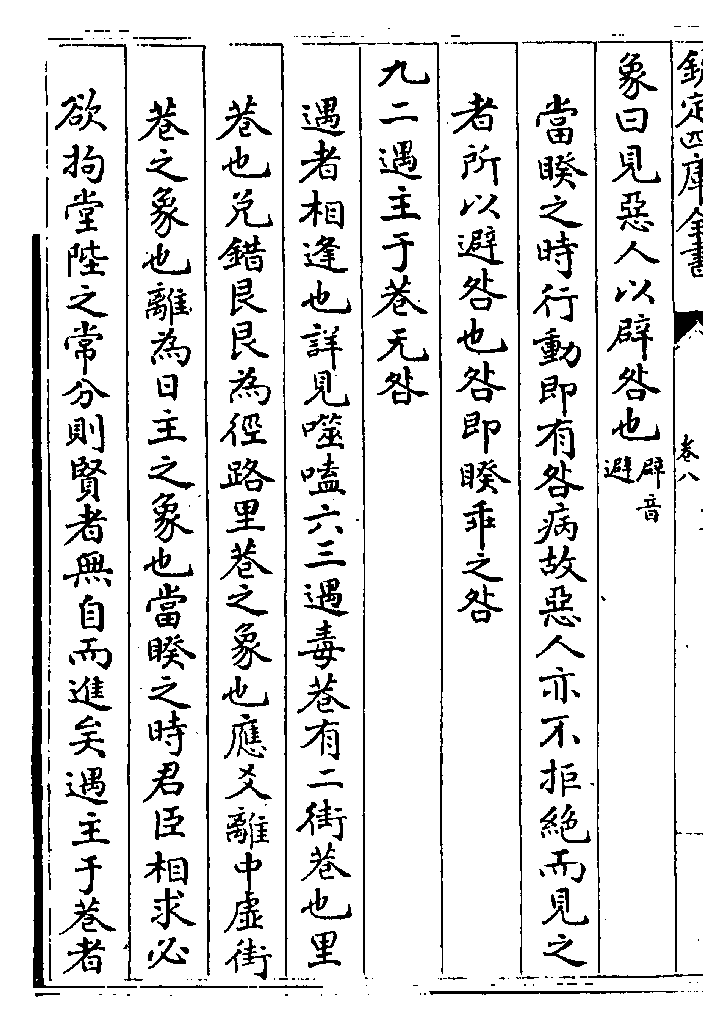 欽定四庫全書
卷八
象曰見惡人以辟咎也辟音避
當睽之時行動即有咎病故惡人亦不拒絶而見之
者所以避咎也咎即睽乖之咎
九二遇主于巷无咎
遇者相逢也詳見噬嗑六三遇毒巷有二街巷也里
巷也兌錯艮艮為徑路里巷之象也應爻離中虛街
巷之象也離為日主之象也當睽之時君臣相求必
欲拘堂陛之常分則賢者無自而進矣遇主于巷者